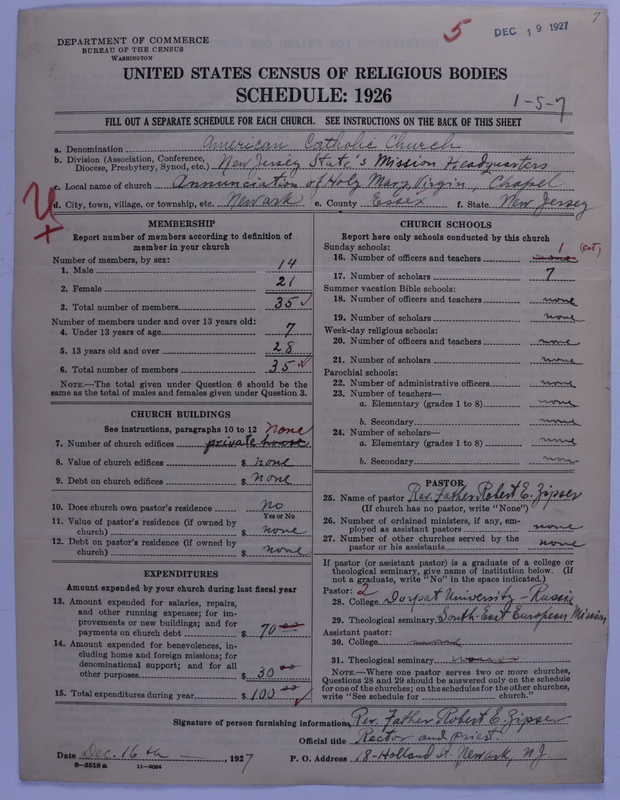 7
5
DEC 19 1927
DEPARTMENT OF COMMERCE
BUREAU OF THE CENSUS
WASHINGTON
UNITED STATES CENSUS OF RELIGIOUS BODIES
SCHEDULE: 1926
1-5-7
FILL OUT A SEPARATE SCHEDULE FOR EACH CHURCH. SEE INSTRUCTIONS ON THE BACK OF THIS SHEET
a. Denomination American Catholic Church
b. Division (Association, Conference, Diocese, Presbytery, Synod, etc.) New Jersey State's Mission Headquarters
c. Local name of church Annunciation of Holy Mary Virgin, Chapel
d. City, town, village, or township, etc. Newark e. County Essex f. State New Jersey
MEMBERSHIP
Report number of members according to definition of
member in your church
Number of members, by sex:
1. Male 14
2. Female 21
3. Total number of members 35
Number of members under and over 13 years old:
4. Under 13 years of age 7
5. 13 years old and over 28
6. Total number of members 35
NOTE.—The total given under Question 6 should be the
same as the total of males and females given under Question 3.
CHURCH BUILDINGS
See instructions, paragraphs 10 to 12 none
7. Number of church edifices private house
8. Value of church edifices $ none
9. Debt on church edifices $ none
10. Does church own pastor's residence No
Yes or No
11. Value of pastor's residence (if owned by
church) $ none
12. Debt on pastor's residence (if owned by
church) $ none
EXPENDITURES
Amount expended by your church during last fiscal year
13. Amount expended for salaries, repairs,
and other running expenses; for im-
provements or new buildings; and for
payments on church debt $ 70
14. Amount expended for benevolences, in-
cluding home and foreign missions; for
denominational support; and for all
other purposes $ 30
15. Total expenditures during year $ 100
CHURCH SCHOOLS
Report here only schools conducted by this church
Sunday schools: 1 (est)
16. Number of officers and teachers none
17. Number of scholars 7
Summer vacation Bible schools:
18. Number of officers and teachers none
19. Number of scholars none
Week-day religious schools:
20. Number of officers and teachers none
21. Number of scholars none
Parochial schools:
22. Number of administrative officers none
23. Number of teachers—
a. Elementary (grades 1 to 8) none
b. Secondary none
24. Number of scholars—
a. Elementary (grades 1 to 8) none
b. Secondary none
PASTOR
25. Name of pastor Rev. Father Robert E. Zipser
(If church has no pastor, write "None")
26. Number of ordained ministers, if any, em-
ployed as assistant pastors none
27. Number of other churches served by the
pastor or his assistants none
If pastor (or assistant pastor) is a graduate of a college or
theological seminary, give name of institution below. (If
not a graduate, write "No" in the space indicated.)
Pastor: 2
28. College Dorpat University - Russia
29. Theological seminary South-East European Mission
Assistant pastor:
30. College
31. Theological seminary
NOTE.—Where one pastor serves two or more churches,
Questions 28 and 29 should be answered only on the schedule
for one of the churches; on the schedules for the other churches,
write "See schedule for church."
Signature of person furnishing information Rev. Father Robert E. Zipser
Official title Rector and priest.
Date Dec. 16th, 1927 P. O. Address 18-Holland St. Newark, N.J.
8-5518a 11-8584